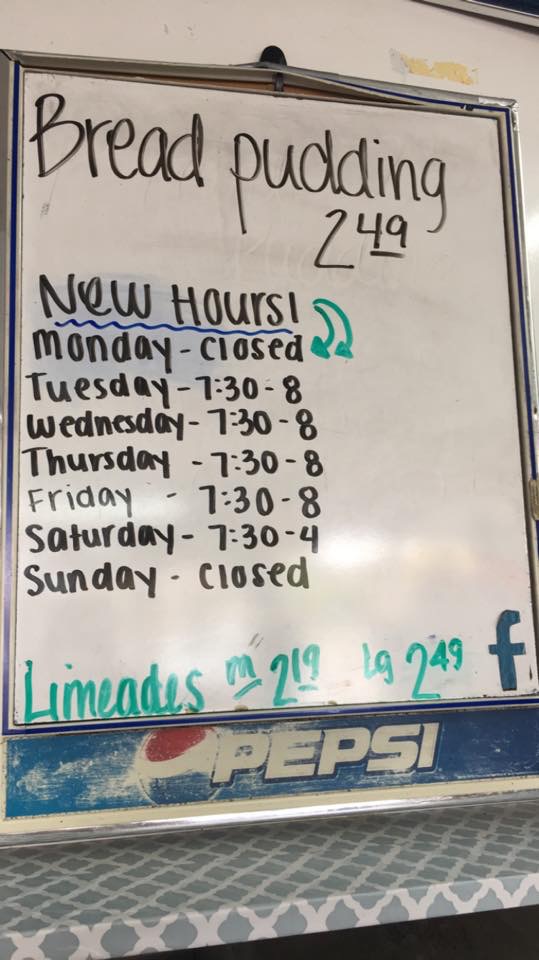 Bread pudding
2 49
New Hours!
Monday - Closed
Tuesday - 7:30 - 8
Wednesday - 7:30 - 8
Thursday - 7:30 - 8
Friday - 7:30 - 8
Saturday - 7:30 - 4
Sunday - Closed
Limeades m 2 19 Lg 2 49
f
PEPSI